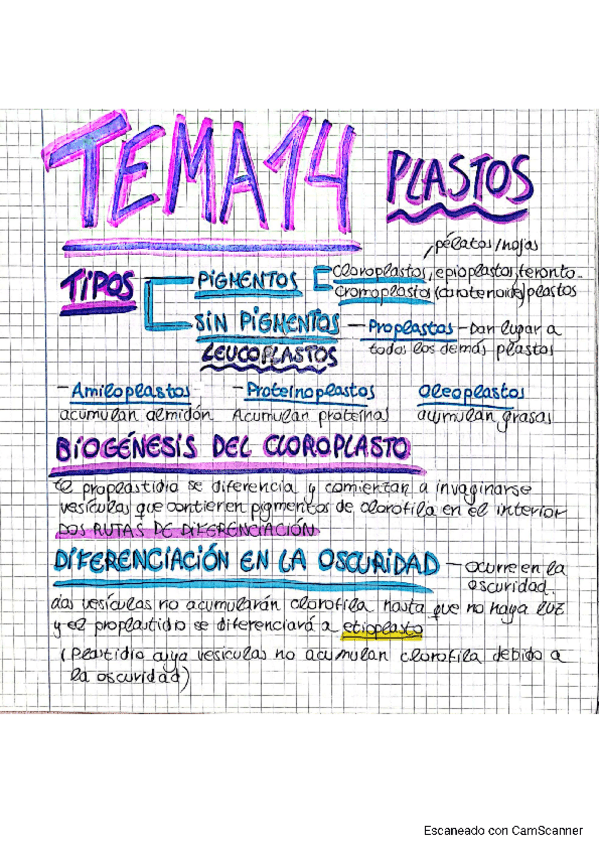 TEMA 14 PLASTOS
pétalos/hojas
TIPOS PIGMENTOS Cloroplastos, epioplastos, geronto-
cromoplastos (carotenoides) plastos
SIN PIGMENTOS - Proplastos - Dan lugar a
LEUCOPLASTOS todos los demás plastos
- Amiloplastos - Proteinoplastos Oleoplastos
acumulan almidón Acumulan proteínas acumulan grasas
BIOGÉNESIS DEL CLOROPLASTO
El proplastidio se diferencia y comienzan a invaginarse
vesículas que contienen pigmentos de clorofila en el interior
DOS RUTAS DE DIFERENCIACIÓN
DIFERENCIACIÓN EN LA OSCURIDAD - ocurre en la
oscuridad
Las vesículas no acumularán clorofila hasta que no haya luz
y el proplastidio se diferenciará a etioplasto
(Plastidio cuya vesículas no acumulan clorofila debido a
la oscuridad)
Escaneado con CamScanner